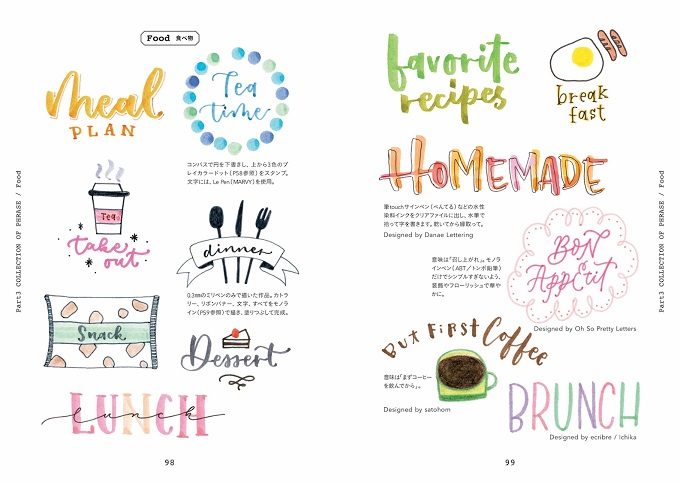 Food 食べ物
meal
PLAN
Tea
time
コンパスで円を下書きし、上から3色のプ
レイカラードット（P58参照）をスタンプ。
文字には、Le Pen（MARVY）を使用。
Tea
take
out
dinner
0.3mmのミリペンのみで描いた作品。カトラ
リー、リボンバナー、文字、すべてをモノラ
イン（P59参照）で描き、塗りつぶして完成。
Snack
Dessert
LUNCH
lunch
Part3 COLLECTION OF PHRASE / Food
98
favorite
recipes
break
fast
HOMEMADE
筆touchサインペン（ぺんてる）などの水性
染料インクをクリアファイルに出し、水筆で
拾って字を書きます。乾いてから縁取って。
Designed by Danae Lettering
意味は「召し上がれ」。モノラ
インペン（ABT／トンボ鉛筆）
だけでシンプルすぎないよう、
装飾やフローリッシュで華や
かに。
BON
APPÉtit
Designed by Oh So Pretty Letters
But First Coffee
意味は「まずコーヒー
を飲んでから」。
Designed by satohom
BRUNCH
Designed by ecribre / ichika
Part3 COLLECTION OF PHRASE / Food
99